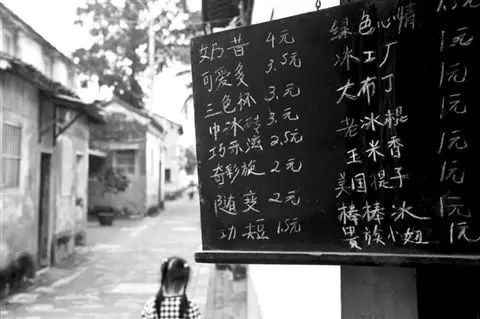 奶昔 4元
可爱多 3.5元
三色杯 3.元
中冰砖 3.元
巧乐滋 2.5元
奇彩旋 2元
随变 2元
1.5元
绿色心情
冰工厂 1元
大布丁 1元
老冰棍 1元
玉米香 1元
美国棍子 1元
棒棒冰 1元
贵族小姐 1元